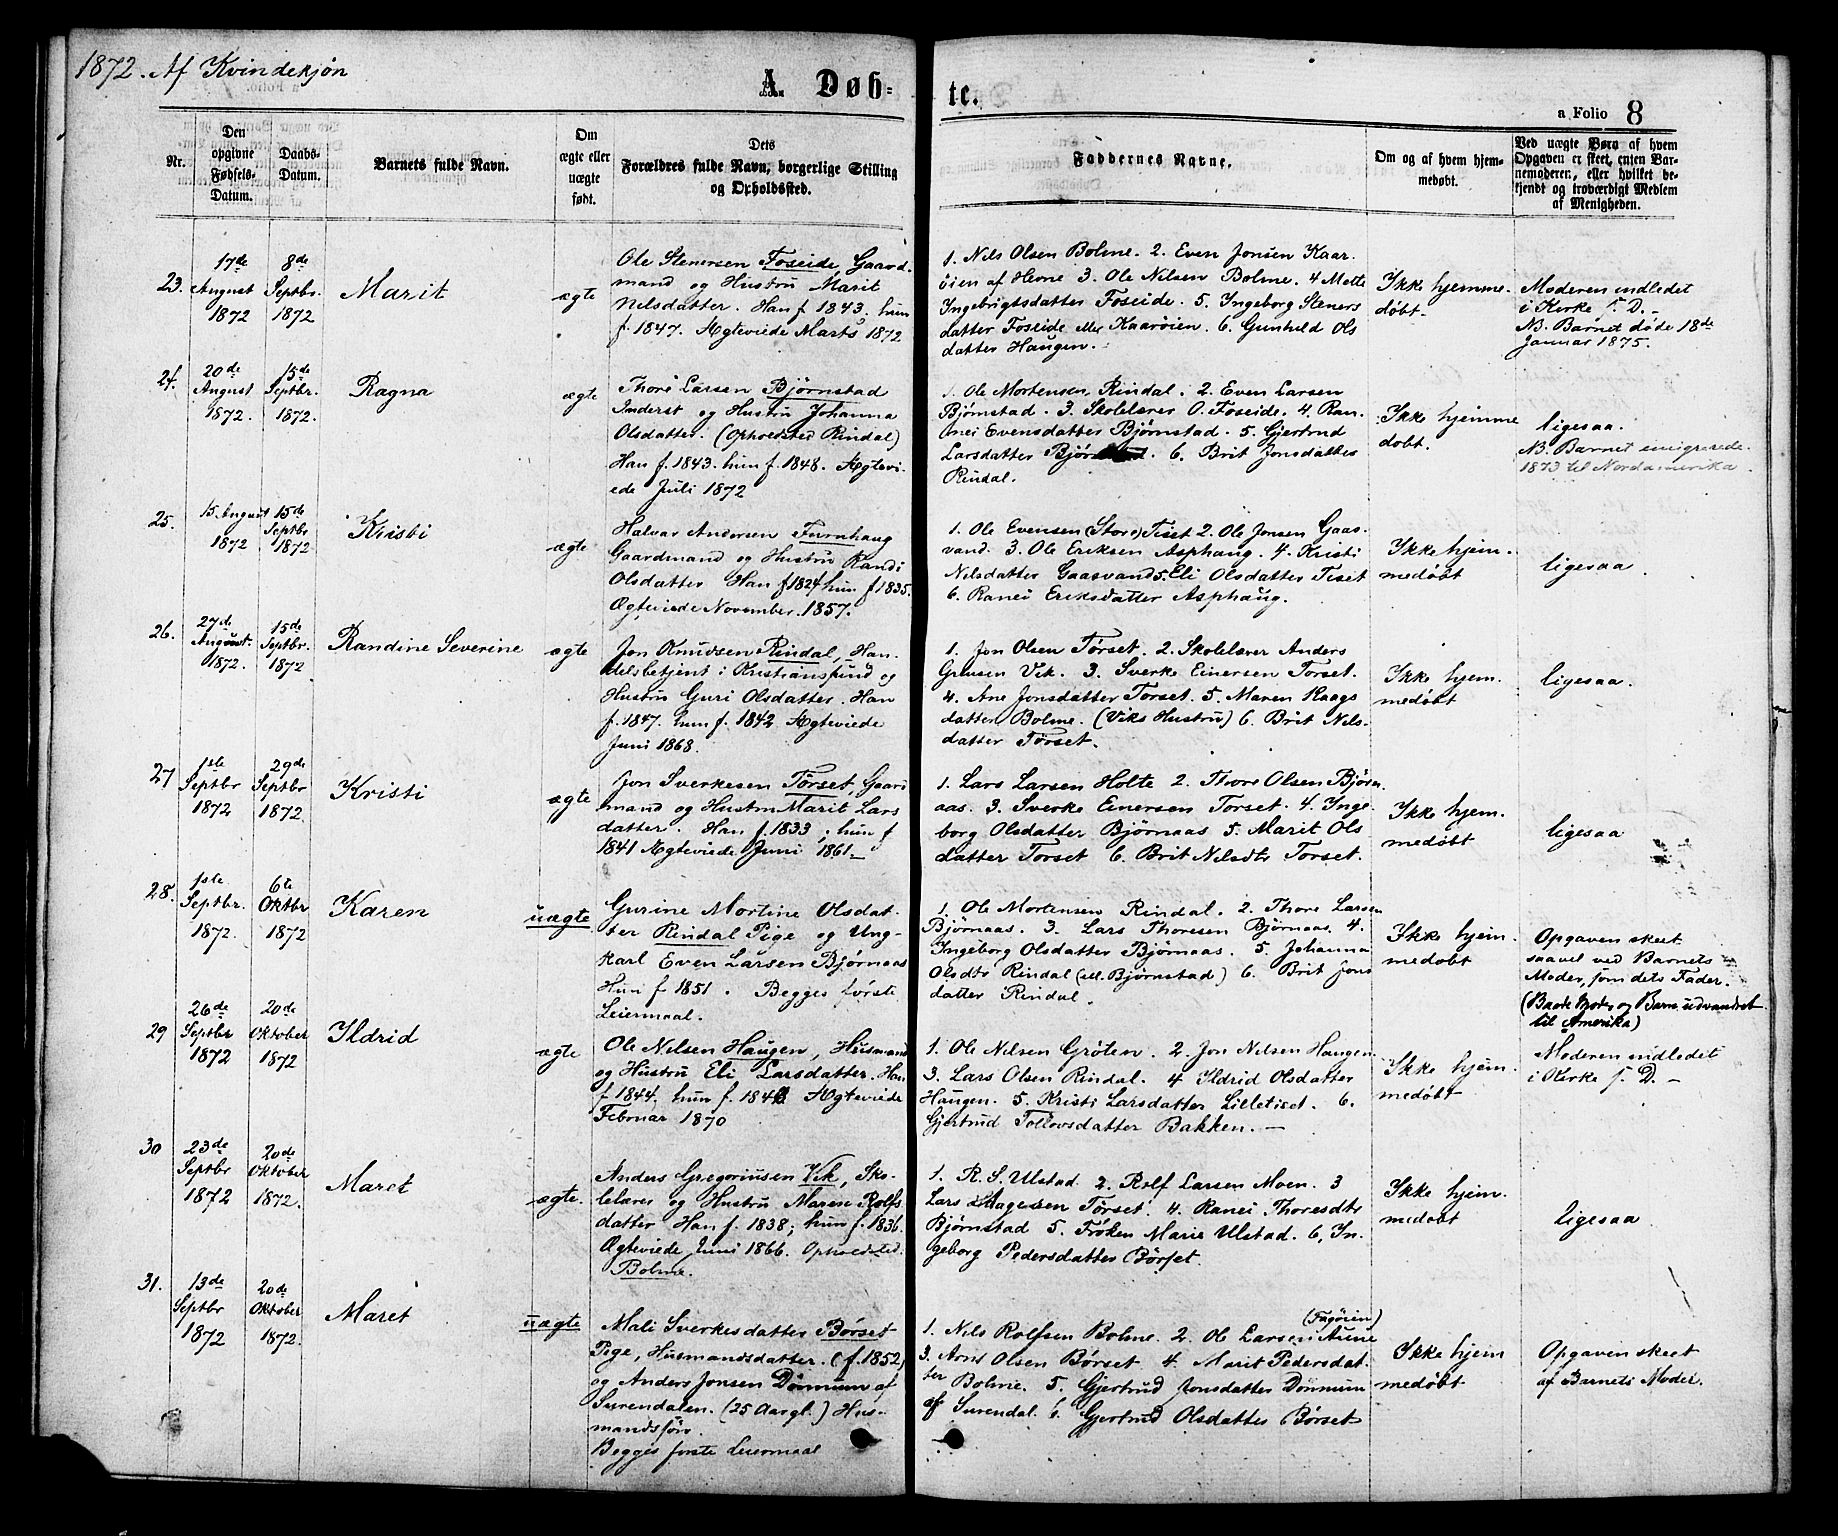 1872. Af Kvindekjøn
A. Døb-
te.
a Folio 8
Nr.
Den opgivne Fødsels-Datum.
Daabs-Datum.
Barnets fulde Navn.
Om ægte eller uægte født.
Dets Forældres fulde Navn, borgerlige Stilling og Opholdssted.
Faddernes Navne.
Om og af hvem hjemmedøbt.
Ved uægte Børn af hvem Opgaven er skeet, enten Barnemoderen, eller hvilket bekjendt og troværdigt Medlem af Menigheden.
23.
17de August 1872
8de Septbr. 1872
Marit
ægte
Ole Stenersen Foseide, Gaard-
mand og Hustru Marit
Nilsdatter. Han f 1843, hun
f. 1847. Ægteviede Marts 1872
1. Nils Olsen Bolme. 2. Even Jonsen Kaar
öien af Hevne 3. Ole Nilsen Bolme. 4 Mette
Ingebrigtsdatter Foseide. 5. Ingeborg Steners
datter Foseide Kaaröien. 6. Gunhild Ols
datter Haugen.
Ikke hjemme
døbt.
Moderen indledet
i Kirke s. D. -
NB. Barnet døde 18de
Januar 1875.
24.
20de August 1872.
15de Septbr. 1872.
Ragna
ægte
Thore Larsen Bjørnstad
Inderst og Hustru Johanna
Olsdatter. (Opholdsted Rindal)
Han f. 1843. hun f. 1848. Ægtevi-
ede Juli 1872
1. Ole Mortensen Rindal. 2. Even Larsen
Bjørnstad. 3. Skolelærer O. Foseide. 4. Ran-
nei Evensdatter Bjørnstad. 5. Gjertrud
Larsdatter 6. Brit Jonsdatter
Rindal.
Ikke hjemme
døbt.
ligesaa.
NB. Barnet emigrerede
1873 til Nordamerika.
25.
15. August 1872
15de Septbr 1872
Kristi
ægte
Halvar Andersen Furuhaug
Gaardmand og Hustru Randi
Olsdatter Han f 1824 hun f 1835.
Ægteviede November. 1857.
1. Ole Evensen (Store) Tiset 2. Ole Jonsen Gaas-
vand. 3. Ole Eriksen Asphaug. 4. Kristi
Nilsdatter Gaasvand 5. Eli Olsdatter Tiset
6. Ranei Eriksdatter Asphaug.
Ikke hjem-
medøbt
ligesaa.
26.
27de August. 1872.
15de Septbr. 1872
Randine Severine
ægte
Jon Knudsen Rindal, Han-
delsbetjent i Kristiansund og
Hustru Guri Olsdatter. Han
f. 1847. hun f. 1842 Ægteviede
Juni 1868.
1. Jon Olsen Tørset. 2. Skolelærer Anders
Vik. 3. Sverke Einersen Torset.
4. Ane Jonsdatter Torset. 5. Maren
datter Bolme. (Viks Hustru) 6. Brit Nils-
datter Tørset.
Ikke hjem.
medøbt
ligesaa.
27
1ste Septbr 1872
29de Septbr 1872.
Kristi
ægte
Jon Sverkesen Tørset, Gaard
mand og Hustru Marit Lars
datter. Han f. 1833; hun f
1841 Ægteviede Juni 1861-
1. Lars Larsen Holte 2. Thore Olsen Bjørn
aas. 3. Sverke Einersen Torset. 4. Inge-
borg Olsdatter Bjørnaas 5. Marit Ols
datter Torset 6. Brit Nilsdtr Torset.
Ikke hjem.
medøbt
ligesaa
28.
1ste Septbr. 1872.
6te Oktbr 1872
Karen
uægte
Gurine Mortine Olsdat-
ter Rindal Pige og Ung-
karl Even Larsen Bjørnaas
Hun f 1851. Begges første
Leiermaal.
1. Ole Mortensen Rindal. 2. Thore Larsen
Bjørnaas. 3. Lars Thoresen Bjørnaas. 4.
Ingeborg Olsdatter Bjørnaas. 5. Johanna
Olsdtr Rindal (ell. Bjørnstad) 6. Brit Jons
datter Rindal.
Ikke hjem-
medøbt
Opgaven skeet
saavel ved Barnets
Moder, som dets Fader.
(Baade Moder og Barn udvandret
til Amerika)
29
26de Septbr 1872
20de Oktober 1872
Ildrid
ægte
Ole Nilsen Haugen, Husmand
og Hustru Eli Larsdatter. Han
f 1844. hun f. Ægteviede
Februar 1870
1. Ole Nilsen Grøten. 2. Jon Nilsen Haugen.
3. Lars Olsen Rindal. 4 Ildrid Olsdatter
Haugen. 5. Kristi Larsdatter Lilletiset. 6.
Gjertrud Tollovsdatter Bakken. -
Ikke hjem.
medøbt
Moderen indledet
i Kirke s. D. -
30
23de Septbr 1872
20de Oktober 1872.
Maret
ægte.
Anders Gregoriussen Vik, Sko-
lelærer og Hustru Maren Rolfs
datter Han f. 1838; hun f. 1836.
Ægteviede Juni 1866. Opholdsted.
Bolme.
1. R. S. Ulstad. 2. Rolf Larsen Moen. 3
Lars Aagessen Tørset. 4. Ranei Thoresdtr
Bjørnstad 5. Frøken Marie Ulstad. 6. In-
geborg Pedersdatter Børset.
Ikke hjem-
medøbt
ligesaa
31.
13de Septbr 1872
20de Oktober 1872.
Maret
uægte
Mali Sverkesdatter Børset
Pige, Husmandsdatter. (f. 1852)
og Anders Jonsen Dönnum af
Surendalen. (25 Aar gl.) Hus-
mandssön.
Begges første Leiermaal
1. Nils Rolfsen Bolme. 2. Ole Larsen Aune (Fagöien)
3. Arnt Olsen Børset. 4. Marit Pedersdat-
ter Bolme. 5. Gjertrud Jonsdatter Dönnum
af Surendal. 6. Gjertrud Olsdatter Børset
Ikke hjem
medøbt
Opgaven skeet
af Barnets Moder.